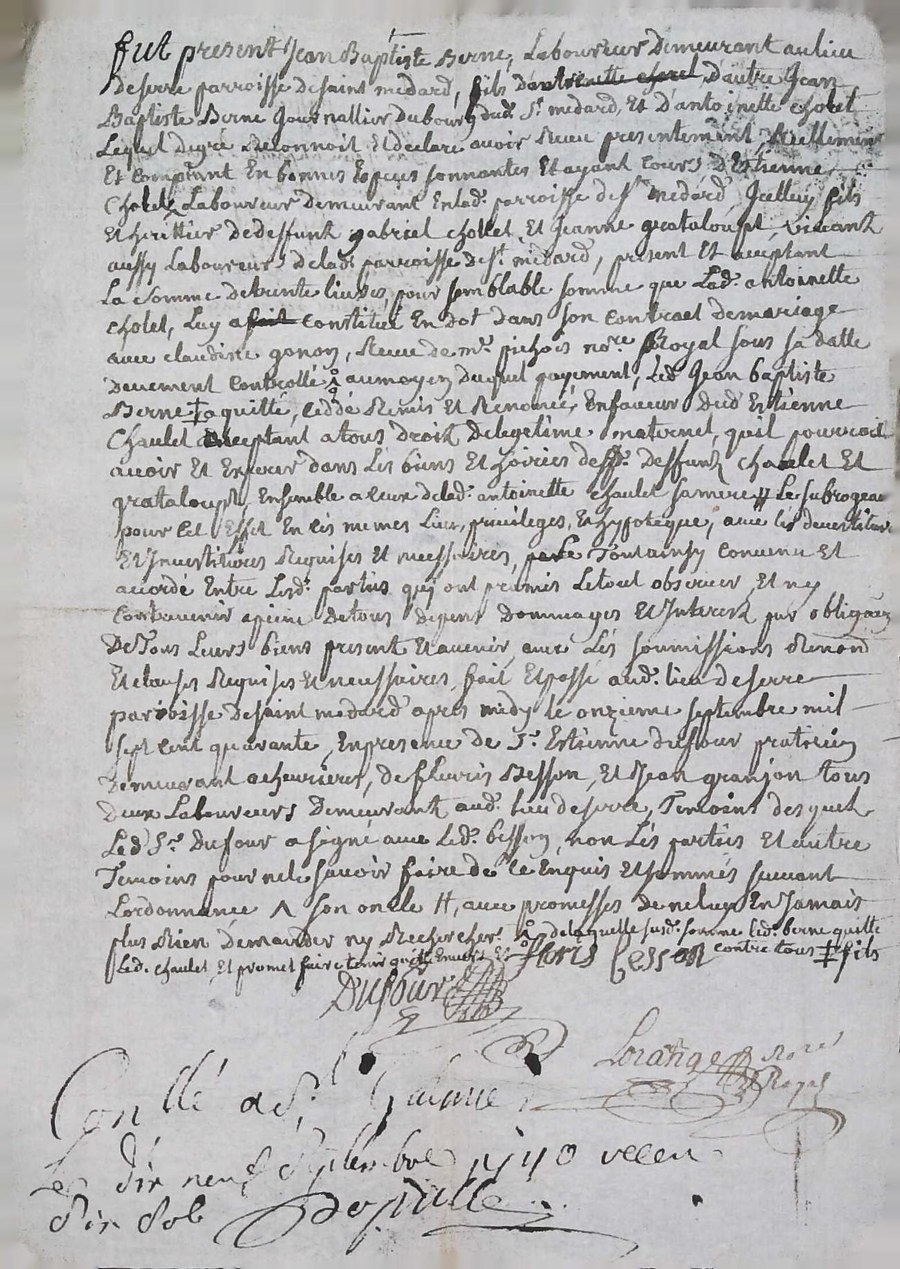 fut present Jean Baptiste Berne, Laboureur Demeurant au lieu
de serre parroisse de saint medard, fils d'antoinette chorel, d'autre Jean
Baptiste Berne Journallier du bourg dud. St. medard, Et D'antoinette chollet
Lequel de gré Reconnoit Et declare avoir Receu presentement, Reellement
Et comptant En bonnes Espeçes sonnantes Et ayant cours D'Estienne
Chollet Laboureur Demeurant En lad. parroisse de St. medard Icelluy fils
Et heritier De deffunt gabriel chollet Et Jeanne grataloupt vivant
aussy Laboureurs de lad. parroisse de St. medard, present Et acceptant
La somme de trente livres, pour semblable somme que Lad. antoinette
cholet, Luy a fait constitué En dot dans son contract de mariage
avec claudine gonon, Receu de Mr. pichois nore. Royal sous sa datte
Deuement controllé au moyen duquel payement, Led. Jean baptiste
Berne ‡ a quitté, ceddé Remis Et Renoncé, En faveur Dud Estienne
Chaulet acceptant a tous droit De legetime maternel, qu'il pourroit
avoir Et Exiger dans Les biens Et hoiries desd. Deffunt chaulet Et
grataloupt, Ensemble a ceux de lad. antoinette chaulet sa mere # Le subrogeant
pour cet Effet En ces memes Lieu, privileges, Et hypoteque, avec les devestitures
Et Investitures Requises Et necessaires, par Ce Tout ainsy convenu Et
accordé Entre Lesd. parties quy ont promis Le tout observer, Et n'y
Contrevenir a peine De tous depens Dommages Et Interest par obligaon
De Tous Leurs biens present Et avenir avec Les soumissions Renond
Et clauses Requises Et necessaires, fait Et passé aud. lieu de serre
parroisse de saint medard apres midy le onzieme septembre mil
sept cent quarante, En presence de Sr. Estienne dufour praticien
Demeurant a chevrieres, de fleuris Besson, Et Jean granjon tous
deux Laboureurs Demeurant aud. lieu de serre, Temoins desquels
Led. Sr. Dufour a signé avec Led. besson, non Les parties Et autre
Temoins pour ne le savoir faire de ce Enquis Et sommés suivant
Lordonnance Λ son oncle #, avec promesses de ne luy En Jamais
plus Rien demander ny Rechercher de laquelle susd. somme led. berne quitte
Led. chaulet, Et promet faire tenir quitte Envers Et contre tous ‡ fils
floris besson
Dufour
Lorange noré
Royal
Conllé a St. Galmier
Le dix neuf septembre 1740 receu
dix sols